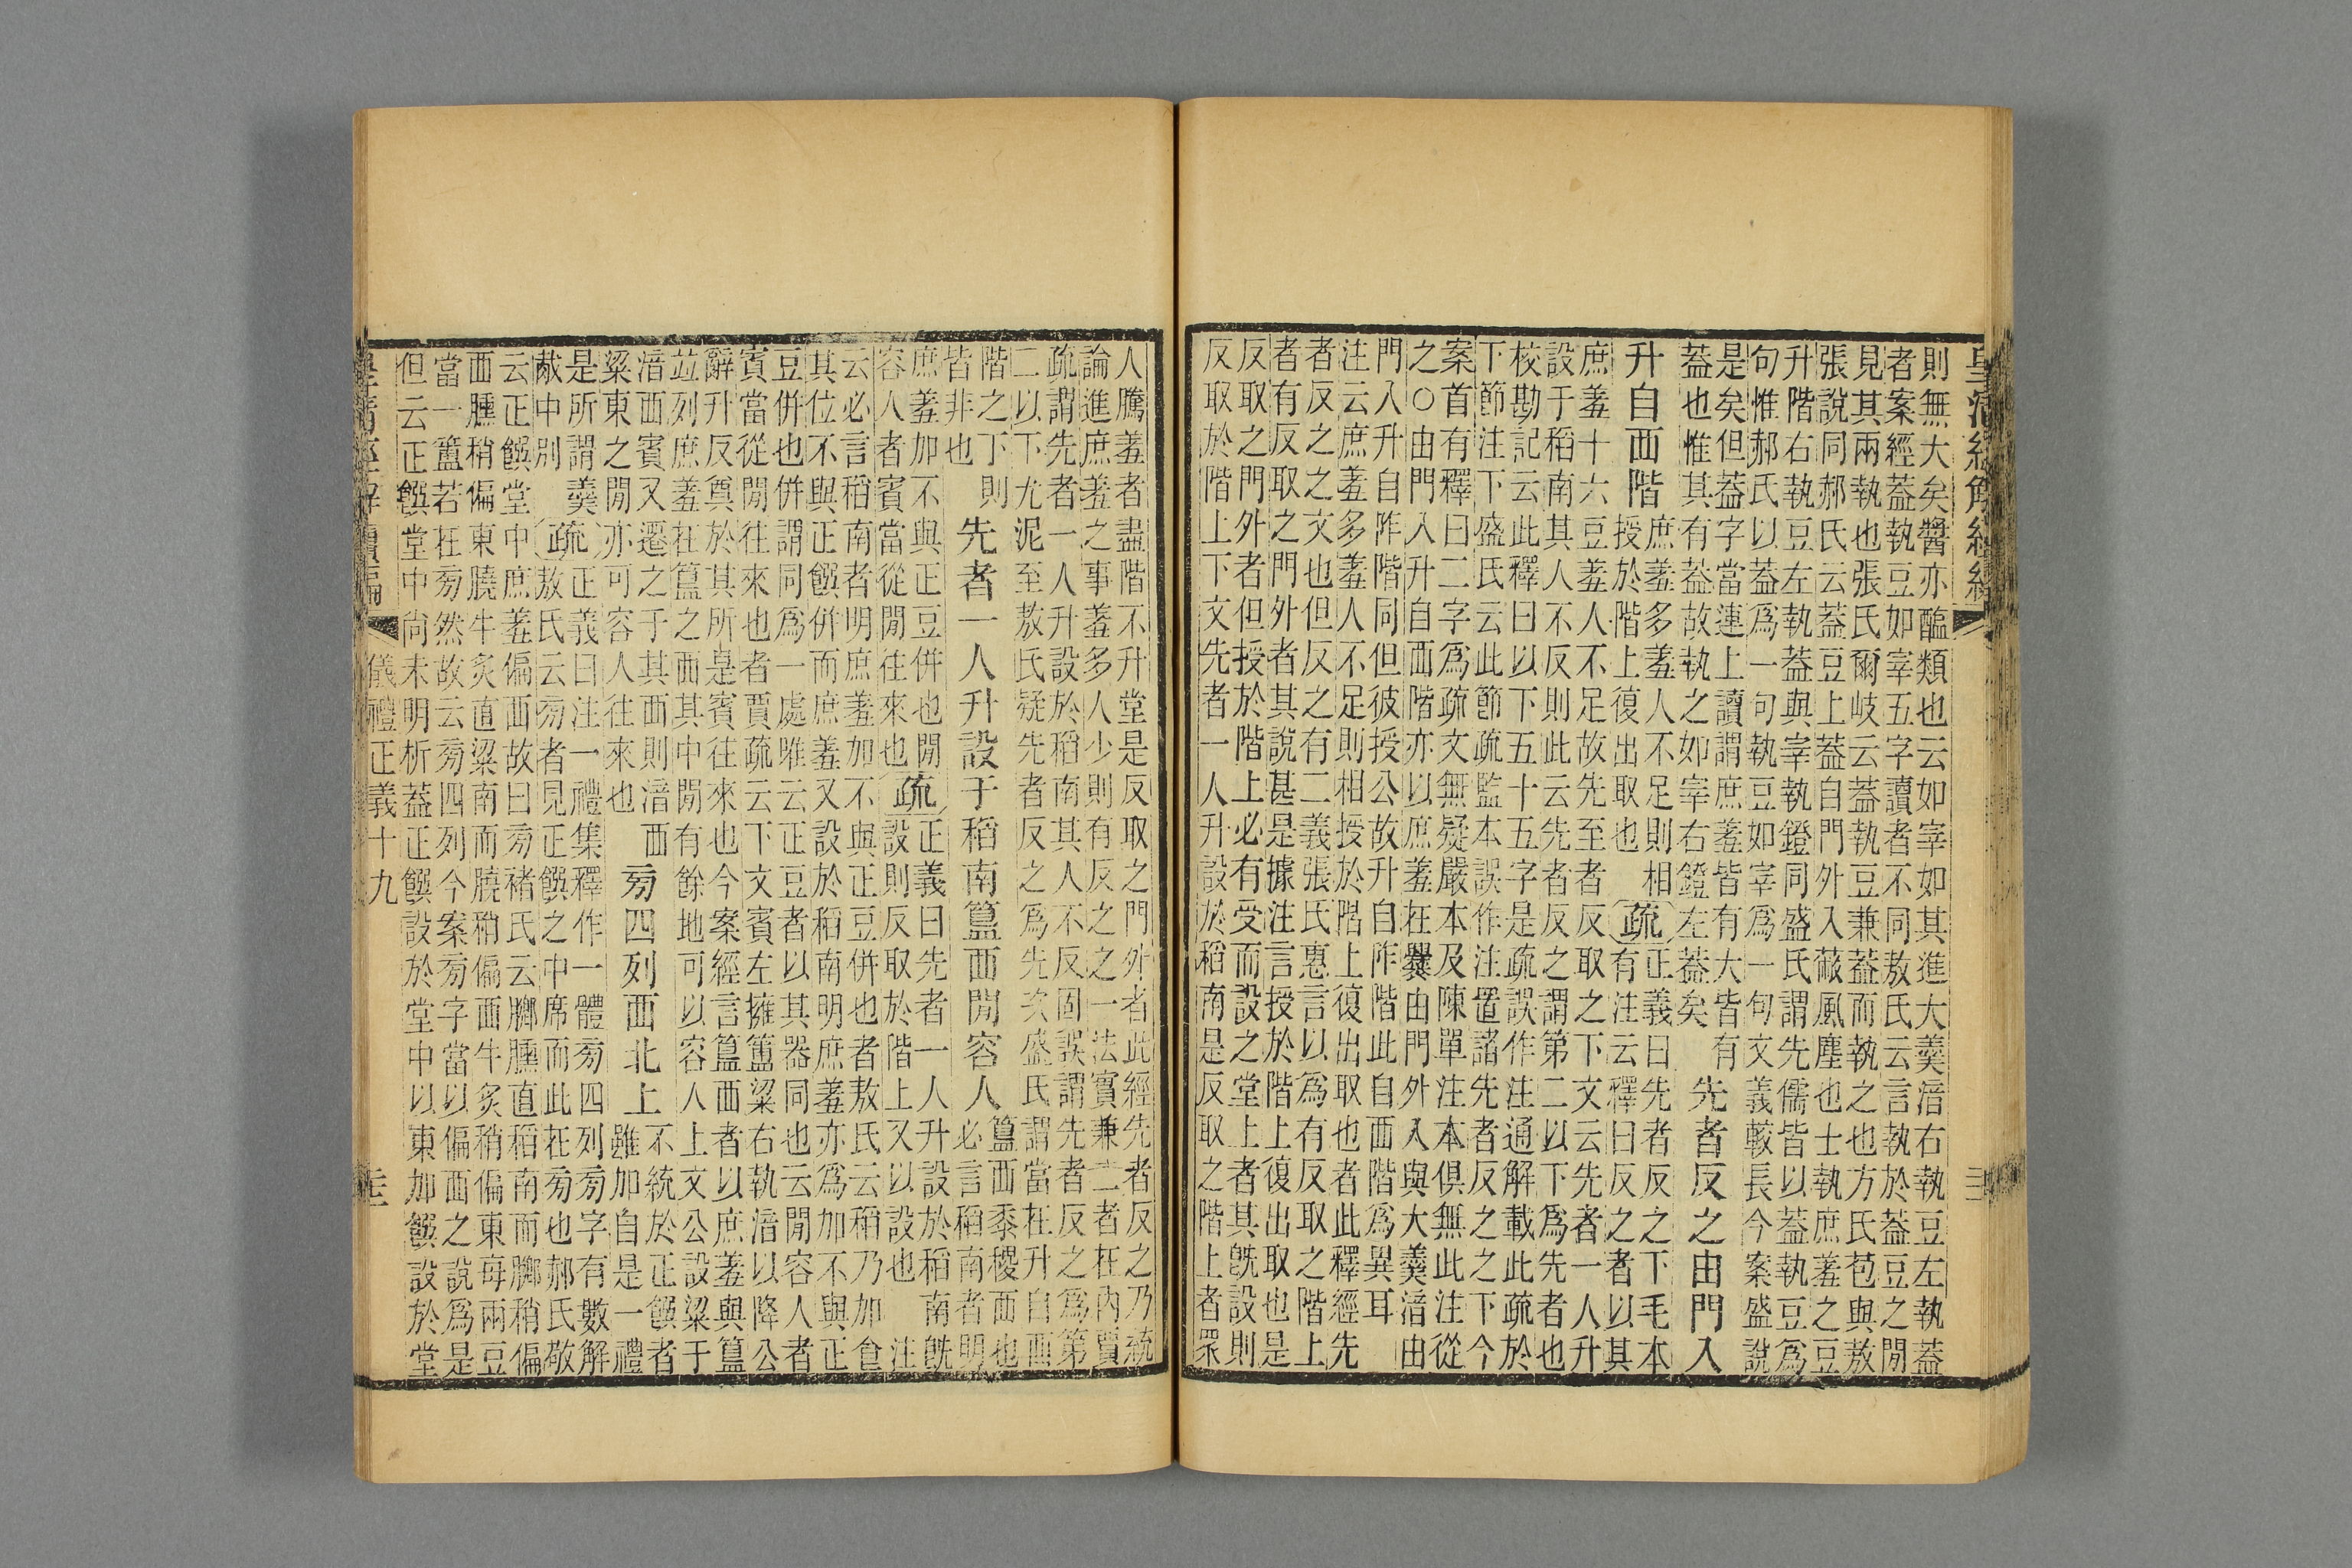 皇清經解續編
則無大矣醬亦醢類也云如宰如其進大羹湆右執豆左執蓋
者案經蓋執豆如宰五字讀者不同敖氏云言執於蓋豆之閒
見其兩執也張氏爾岐云蓋執豆兼蓋而執之也方氏苞與敖
張說同郝氏云蓋豆上蓋自門外入蔽風塵也士執庶羞之豆
升階右執豆左執蓋與宰執鐙同盛氏謂先儒皆以蓋執豆爲
句惟郝氏以蓋爲一句執豆如宰爲一句文義較長今案盛說
是矣但蓋字當連上讀謂庶羞皆有大皆有
蓋也惟其有蓋故執之如宰右鐙左蓋矣
先者反之由門入
升自西階
庶羞多羞人不足則相
授於階上復出取也
疏
正義曰先者反之下毛本
有注云釋曰反之者以其
庶羞十六豆羞人不足故先至者反取之下文云先者一人升
設于稻南其人不反則此云先者反之謂第二以下爲先者也
校勘記云此釋曰以下五十五字是疏誤作注通解載此疏於
下節注下盛氏云此節疏監本誤作注置諸先者反之之下今
案首有釋曰二字爲疏文無疑嚴本及陳單注本俱無此注從
之○由門入升自西階亦以庶羞在爨由門外入與大羹湆由
門入升自阼階同但彼授公故升自阼階此自西階爲異耳
注云庶羞多羞人不足則相授於階上復出取也者此釋經先
者反之之文也但反之有二義張氏惠言以爲有反取之階上
者有反取之門外者其說甚是據注言授於階上復出取也是
反取之門外者但授於階上必有受而設之堂上者其旣設則
反取於階上下文先者一人升設於稻南是反取之階上者眾
人騰羞者盡階不升堂是反取之門外者此經先者反之乃統
論進庶羞之事羞多人少則有反之之一法實兼二者在內賈
疏謂先者一人升設於稻南其人不反固誤謂先者反之爲第
二以下尤泥至敖氏疑先者反之爲先次盛氏謂當在升自西
階之下則
皆非也
先者一人升設于稻南簋西閒容人
簋西黍稷西也
必言稻南者明
庶羞加不與正豆併也閒
容人者賓當從閒往來也
疏
正義曰先者一人升設於稻南旣
設則反取於階上又以設也注
云必言稻南者明庶羞加不與正豆併也者敖氏云稻乃加食
其位不與正饌併而庶羞又設於稻南明庶羞亦爲加不與正
豆併也併謂同爲一處雎云正豆者以其器同也云閒容人者
賓當從閒往來也者賈疏云下文賓左擁簠粱右執湆以降公
辭升反奠於其所是賓往來也今案經言簋西者以庶羞與簋
竝列庶羞在簋之西其中閒有餘地可以容人上文公設粱于
湆西賓又遷之于其西則湆西
粱東之閒亦可容人往來也
旁四列西北上
不統於正饌者
雖加自是一禮
是所謂羹
胾中別
疏
正義曰注一禮集釋作一體旁四列旁字有數解
敖氏云旁者見正饌之中席而此在旁也郝氏敬
云正饌堂中庶羞偏西故曰旁褚氏云膷臐直稻南而膷稍偏
西臐稍偏東膮牛炙直粱南而膮稍偏西牛炙稍偏東每兩豆
當一簠若在旁然故云旁四列今案旁字當以偏西之說爲是
但云正饌堂中尚未明析蓋正饌設於堂中以東加饌設於堂
皇清經解續編
儀禮正義十九